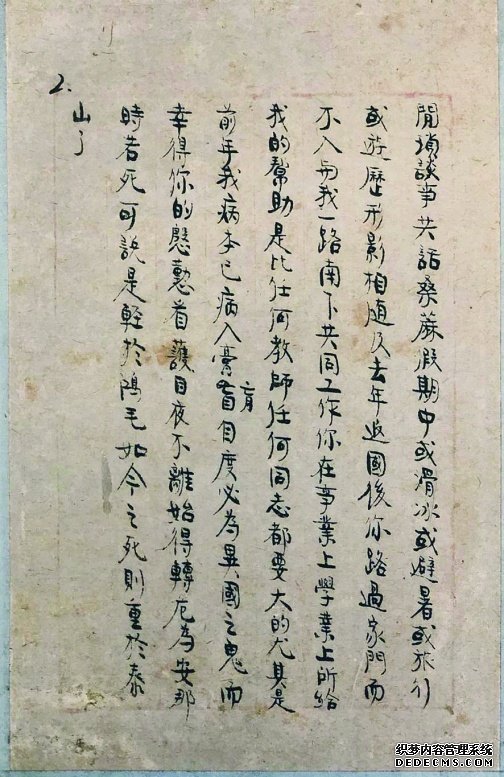 2.
閒瑣談事共話桑蔴假期中或滑冰或避暑或旅行
或遊歷形影相隨及去年返國後你路過家門而
不入与我一路南下共同工作你在事業上學業上所給
我的幫助是比任何教師任何同志都要大的尤其是
前年我病本已病入膏肓自度必為異國之鬼而
幸得你的慇懃看護日夜不離始得轉危為安那
時若死可說是輕於鴻毛如今之死則重於泰
山了
织梦内容管理系统
DEDECMS.COM